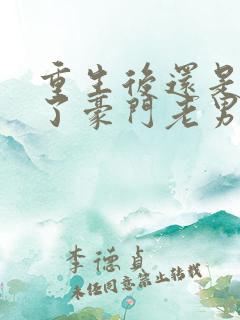 重生後還是
了豪門老男
李德貞
未經同意禁止轉載